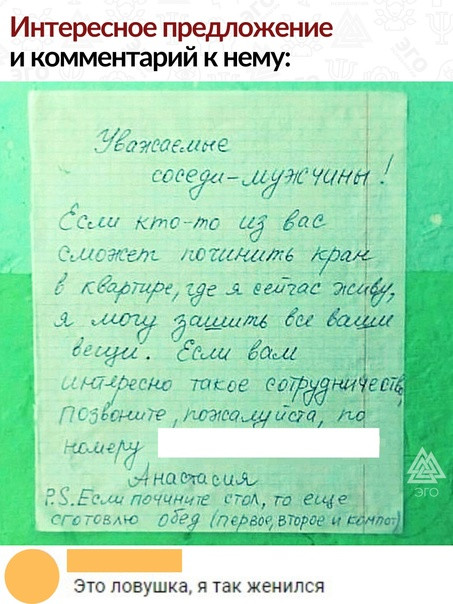 Интересное предложение
и комментарий к нему:
Уважаемые
соседи-мужчины!
Если кто-то из вас
сможет починить кран
в квартире, где я сейчас живу,
я могу зашить все ваши
вещи. Если вам
интересно такое сотрудничество,
позвоните, пожалуйста, по
номеру
Анастасия
P.S. Если почините стол, то еще
сготовлю обед (первое, второе и компот)
ЭГО
Это ловушка, я так женился